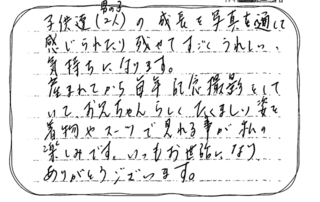 男の子
子供達(2人)の成長を写真を通して
感じられたり残せてすごくうれしい、
気持ちになります。
産まれてから毎年記念撮影をして
いて、お兄ちゃんらしくたくましい姿を
着物やスーツで見れる事が私の
楽しみです。いつもお世話になり
ありがとうございます。